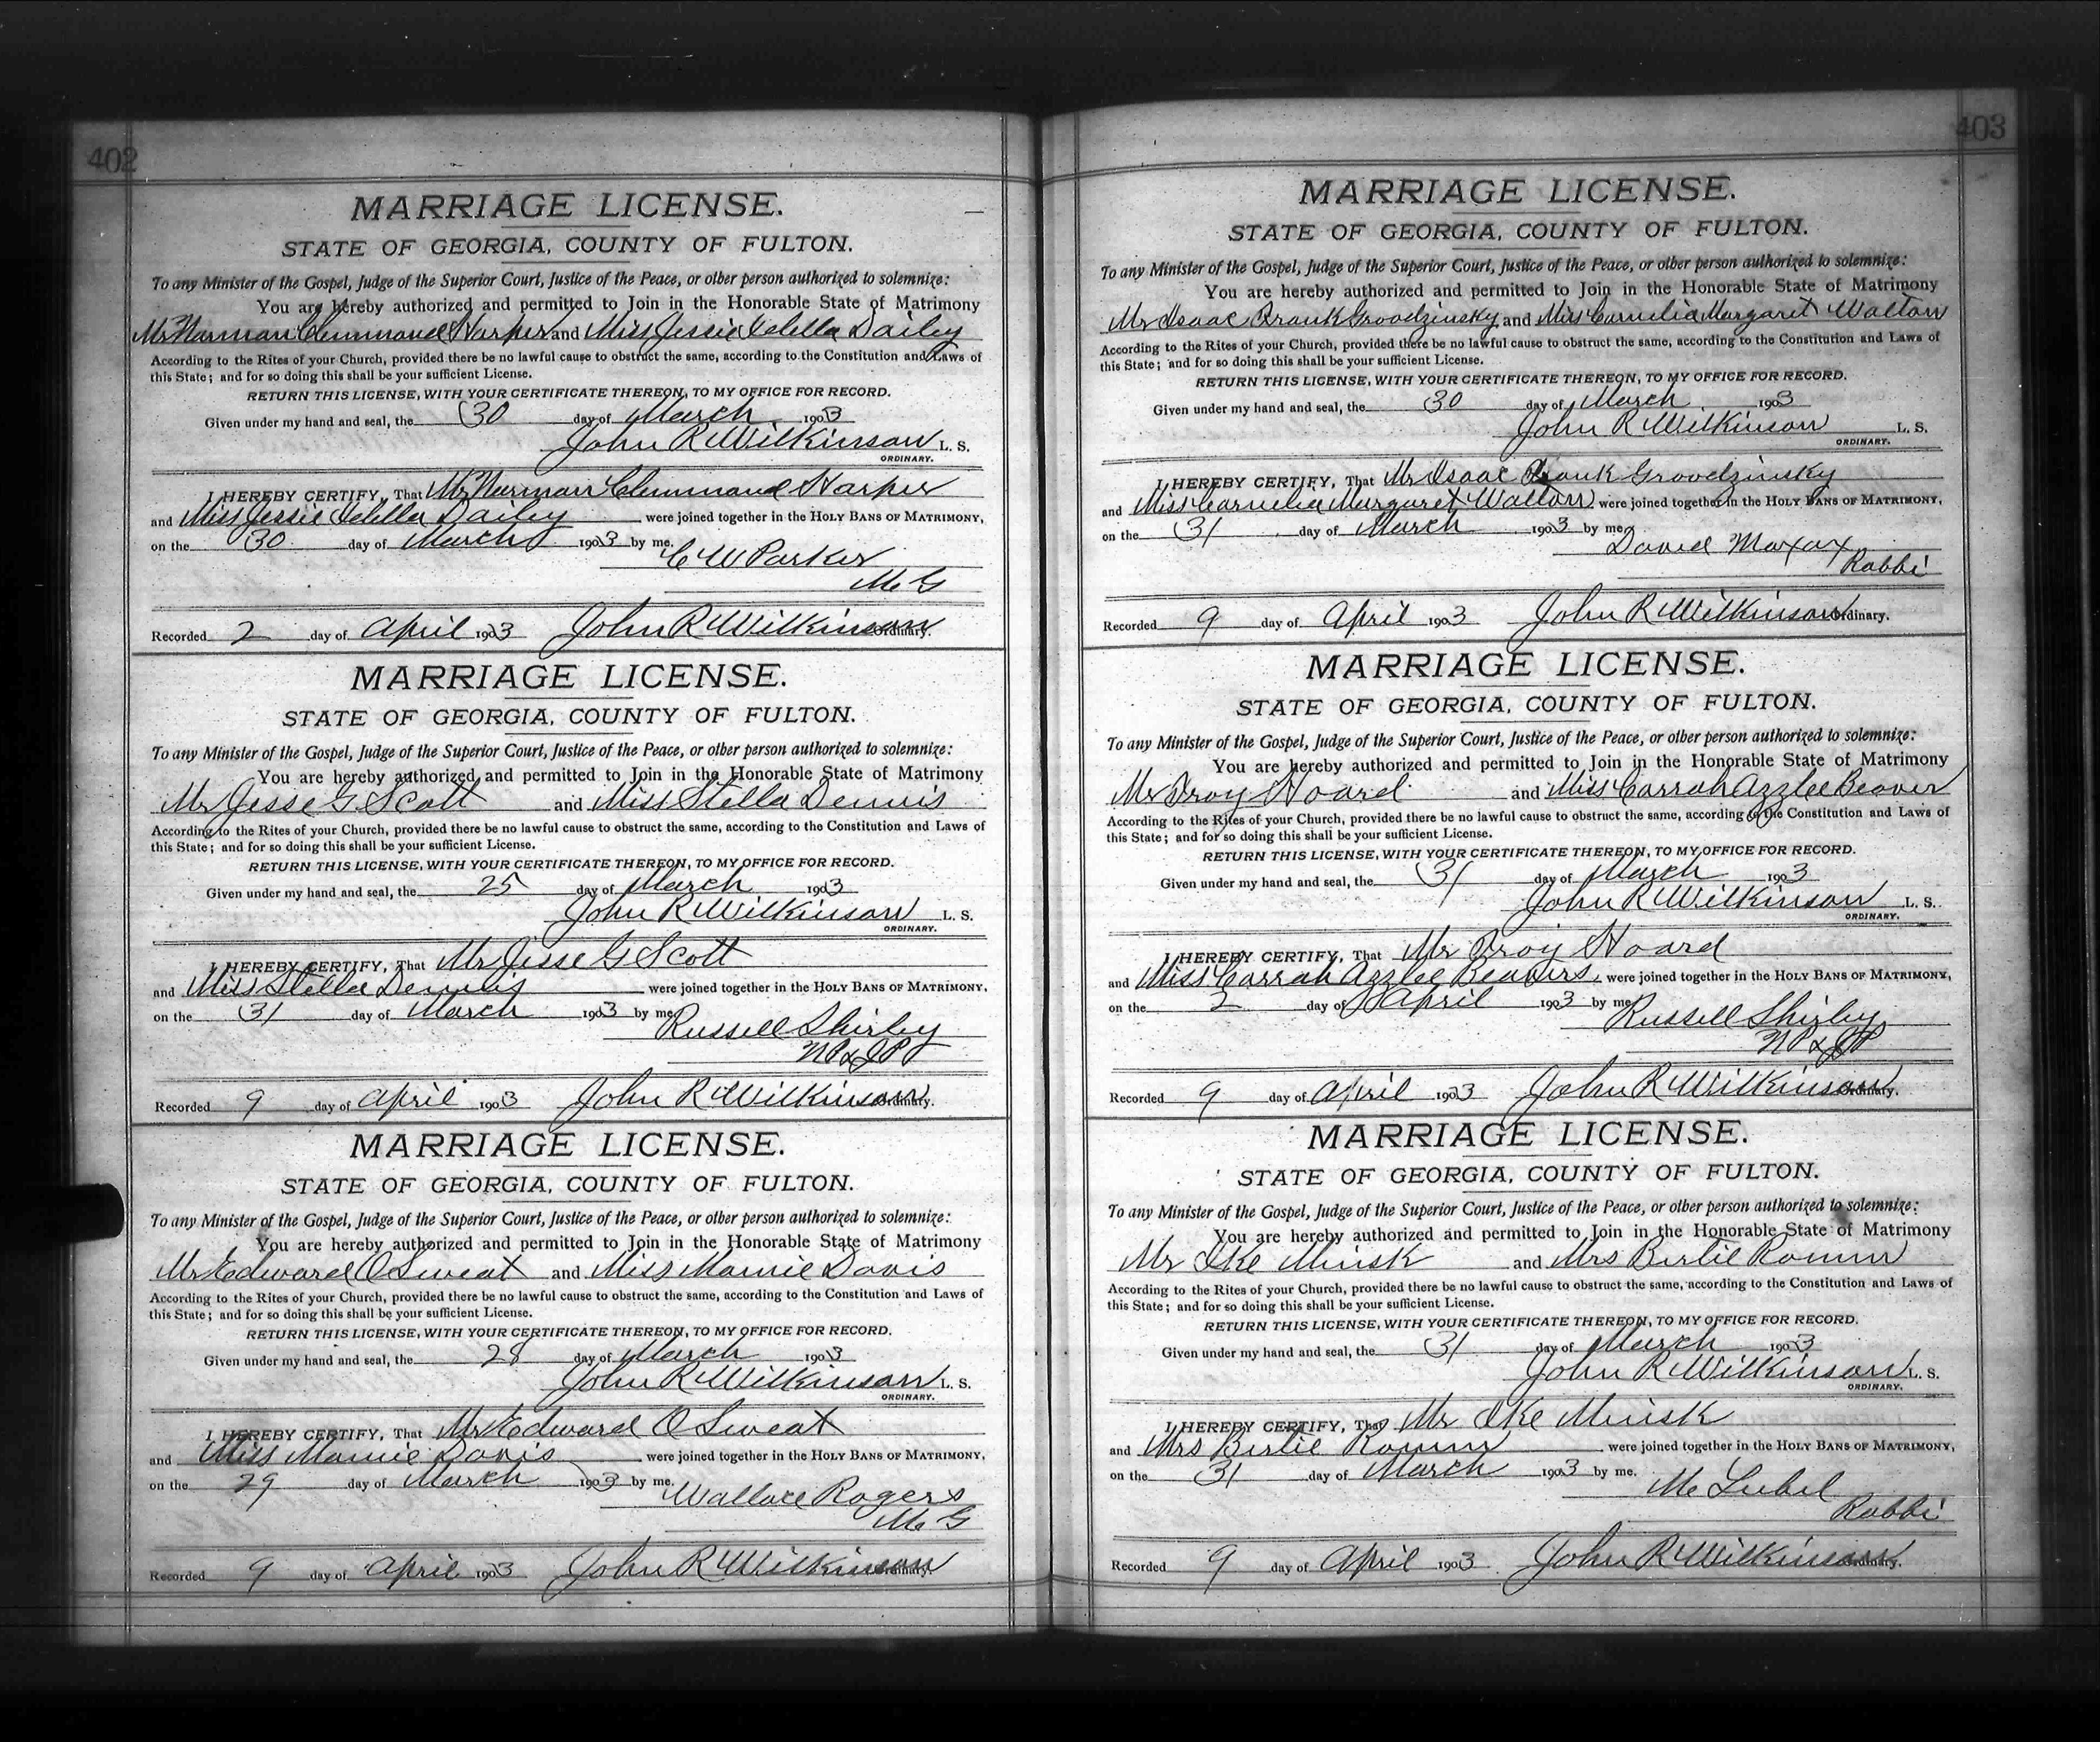 402
MARRIAGE LICENSE.
STATE OF GEORGIA, COUNTY OF FULTON.
To any Minister of the Gospel, Judge of the Superior Court, Justice of the Peace, or other person authorized to solemnize:
You are hereby authorized and permitted to Join in the Honorable State of Matrimony
Mr Harper and Miss Jessie Dailey
According to the Rites of your Church, provided there be no lawful cause to obstruct the same, according to the Constitution and Laws of
this State; and for so doing this shall be your sufficient License.
RETURN THIS LICENSE, WITH YOUR CERTIFICATE THEREON, TO MY OFFICE FOR RECORD.
Given under my hand and seal, the 30 day of March 1903
John R Wilkinson L. S.
ORDINARY.
I HEREBY CERTIFY, That Mr Harper
and Miss Jessie Dailey were joined together in the HOLY BANS OF MATRIMONY,
on the 30 day of March 1903 by me.
C W Parker
M G
Recorded 2 day of April 1903 John R Wilkinson Ordinary.
MARRIAGE LICENSE.
STATE OF GEORGIA, COUNTY OF FULTON.
To any Minister of the Gospel, Judge of the Superior Court, Justice of the Peace, or other person authorized to solemnize:
You are hereby authorized and permitted to Join in the Honorable State of Matrimony
Mr Jesse G Scott and Miss Stella Dennis
According to the Rites of your Church, provided there be no lawful cause to obstruct the same, according to the Constitution and Laws of
this State; and for so doing this shall be your sufficient License.
RETURN THIS LICENSE, WITH YOUR CERTIFICATE THEREON, TO MY OFFICE FOR RECORD.
Given under my hand and seal, the 25 day of March 1903
John R Wilkinson L. S.
ORDINARY.
I HEREBY CERTIFY, That Mr Jesse G Scott
and Miss Stella Dennis were joined together in the HOLY BANS OF MATRIMONY,
on the 31 day of March 1903 by me.
Russell Shirley
NP & JP
Recorded 9 day of April 1903 John R Wilkinson Ordinary.
MARRIAGE LICENSE.
STATE OF GEORGIA, COUNTY OF FULTON.
To any Minister of the Gospel, Judge of the Superior Court, Justice of the Peace, or other person authorized to solemnize:
You are hereby authorized and permitted to Join in the Honorable State of Matrimony
Mr Edward O Sweat and Miss Mamie Davis
According to the Rites of your Church, provided there be no lawful cause to obstruct the same, according to the Constitution and Laws of
this State; and for so doing this shall be your sufficient License.
RETURN THIS LICENSE, WITH YOUR CERTIFICATE THEREON, TO MY OFFICE FOR RECORD.
Given under my hand and seal, the 28 day of March 1903
John R Wilkinson L. S.
ORDINARY.
I HEREBY CERTIFY, That Mr Edward O Sweat
and Miss Mamie Davis were joined together in the HOLY BANS OF MATRIMONY,
on the 29 day of March 1903 by me.
Wallace Rogers
M G
Recorded 9 day of April 1903 John R Wilkinson Ordinary.
403
MARRIAGE LICENSE.
STATE OF GEORGIA, COUNTY OF FULTON.
To any Minister of the Gospel, Judge of the Superior Court, Justice of the Peace, or other person authorized to solemnize:
You are hereby authorized and permitted to Join in the Honorable State of Matrimony
Mr Isaac Frank Groodzinsky and Miss Cornelia Margaret Walton
According to the Rites of your Church, provided there be no lawful cause to obstruct the same, according to the Constitution and Laws of
this State; and for so doing this shall be your sufficient License.
RETURN THIS LICENSE, WITH YOUR CERTIFICATE THEREON, TO MY OFFICE FOR RECORD.
Given under my hand and seal, the 30 day of March 1903
John R Wilkinson L. S.
ORDINARY.
I HEREBY CERTIFY, That Mr Isaac Frank Groodzinsky
and Miss Cornelia Margaret Walton were joined together in the HOLY BANS OF MATRIMONY,
on the 31 day of March 1903 by me.
David
Rabbi
Recorded 9 day of April 1903 John R Wilkinson Ordinary.
MARRIAGE LICENSE.
STATE OF GEORGIA, COUNTY OF FULTON.
To any Minister of the Gospel, Judge of the Superior Court, Justice of the Peace, or other person authorized to solemnize:
You are hereby authorized and permitted to Join in the Honorable State of Matrimony
Mr Troy Hoard and Miss Carrah Azzlee Beaver
According to the Rites of your Church, provided there be no lawful cause to obstruct the same, according to the Constitution and Laws of
this State; and for so doing this shall be your sufficient License.
RETURN THIS LICENSE, WITH YOUR CERTIFICATE THEREON, TO MY OFFICE FOR RECORD.
Given under my hand and seal, the 31 day of March 1903
John R Wilkinson L. S.
ORDINARY.
I HEREBY CERTIFY, That Mr Troy Hoard
and Miss Carrah Azzlee Beavers were joined together in the HOLY BANS OF MATRIMONY,
on the 2 day of April 1903 by me.
Russell Shirley
NP & JP
Recorded 9 day of April 1903 John R Wilkinson Ordinary.
MARRIAGE LICENSE.
STATE OF GEORGIA, COUNTY OF FULTON.
To any Minister of the Gospel, Judge of the Superior Court, Justice of the Peace, or other person authorized to solemnize:
You are hereby authorized and permitted to Join in the Honorable State of Matrimony
Mr Ike Minsk and Mrs Bertie
According to the Rites of your Church, provided there be no lawful cause to obstruct the same, according to the Constitution and Laws of
this State; and for so doing this shall be your sufficient License.
RETURN THIS LICENSE, WITH YOUR CERTIFICATE THEREON, TO MY OFFICE FOR RECORD.
Given under my hand and seal, the 31 day of March 1903
John R Wilkinson L. S.
ORDINARY.
I HEREBY CERTIFY, That Mr Ike Minsk
and Mrs Bertie were joined together in the HOLY BANS OF MATRIMONY,
on the 31 day of March 1903 by me.
Rabbi
Recorded 9 day of April 1903 John R Wilkinson Ordinary.